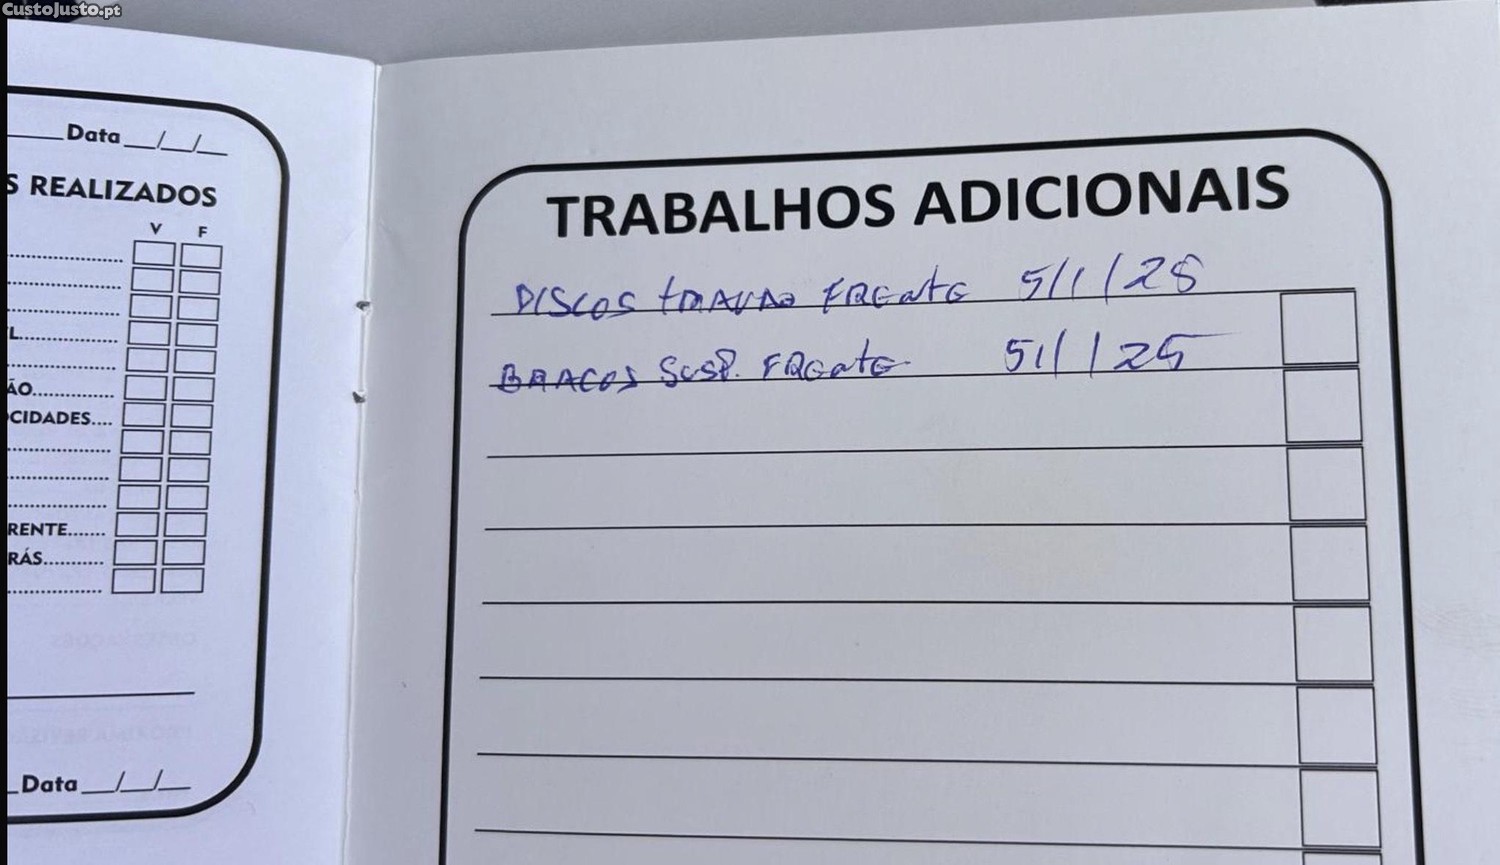 CustoJusto.pt
Data __/__/__
S REALIZADOS
V F
L
ÃO
CIDADES
RENTE
RÁS
Data __/__/__
TRABALHOS ADICIONAIS
DISCOS TRAVAO FRENTE 5/1/25
BRACOS SUSP. FRENTE 5/1/25